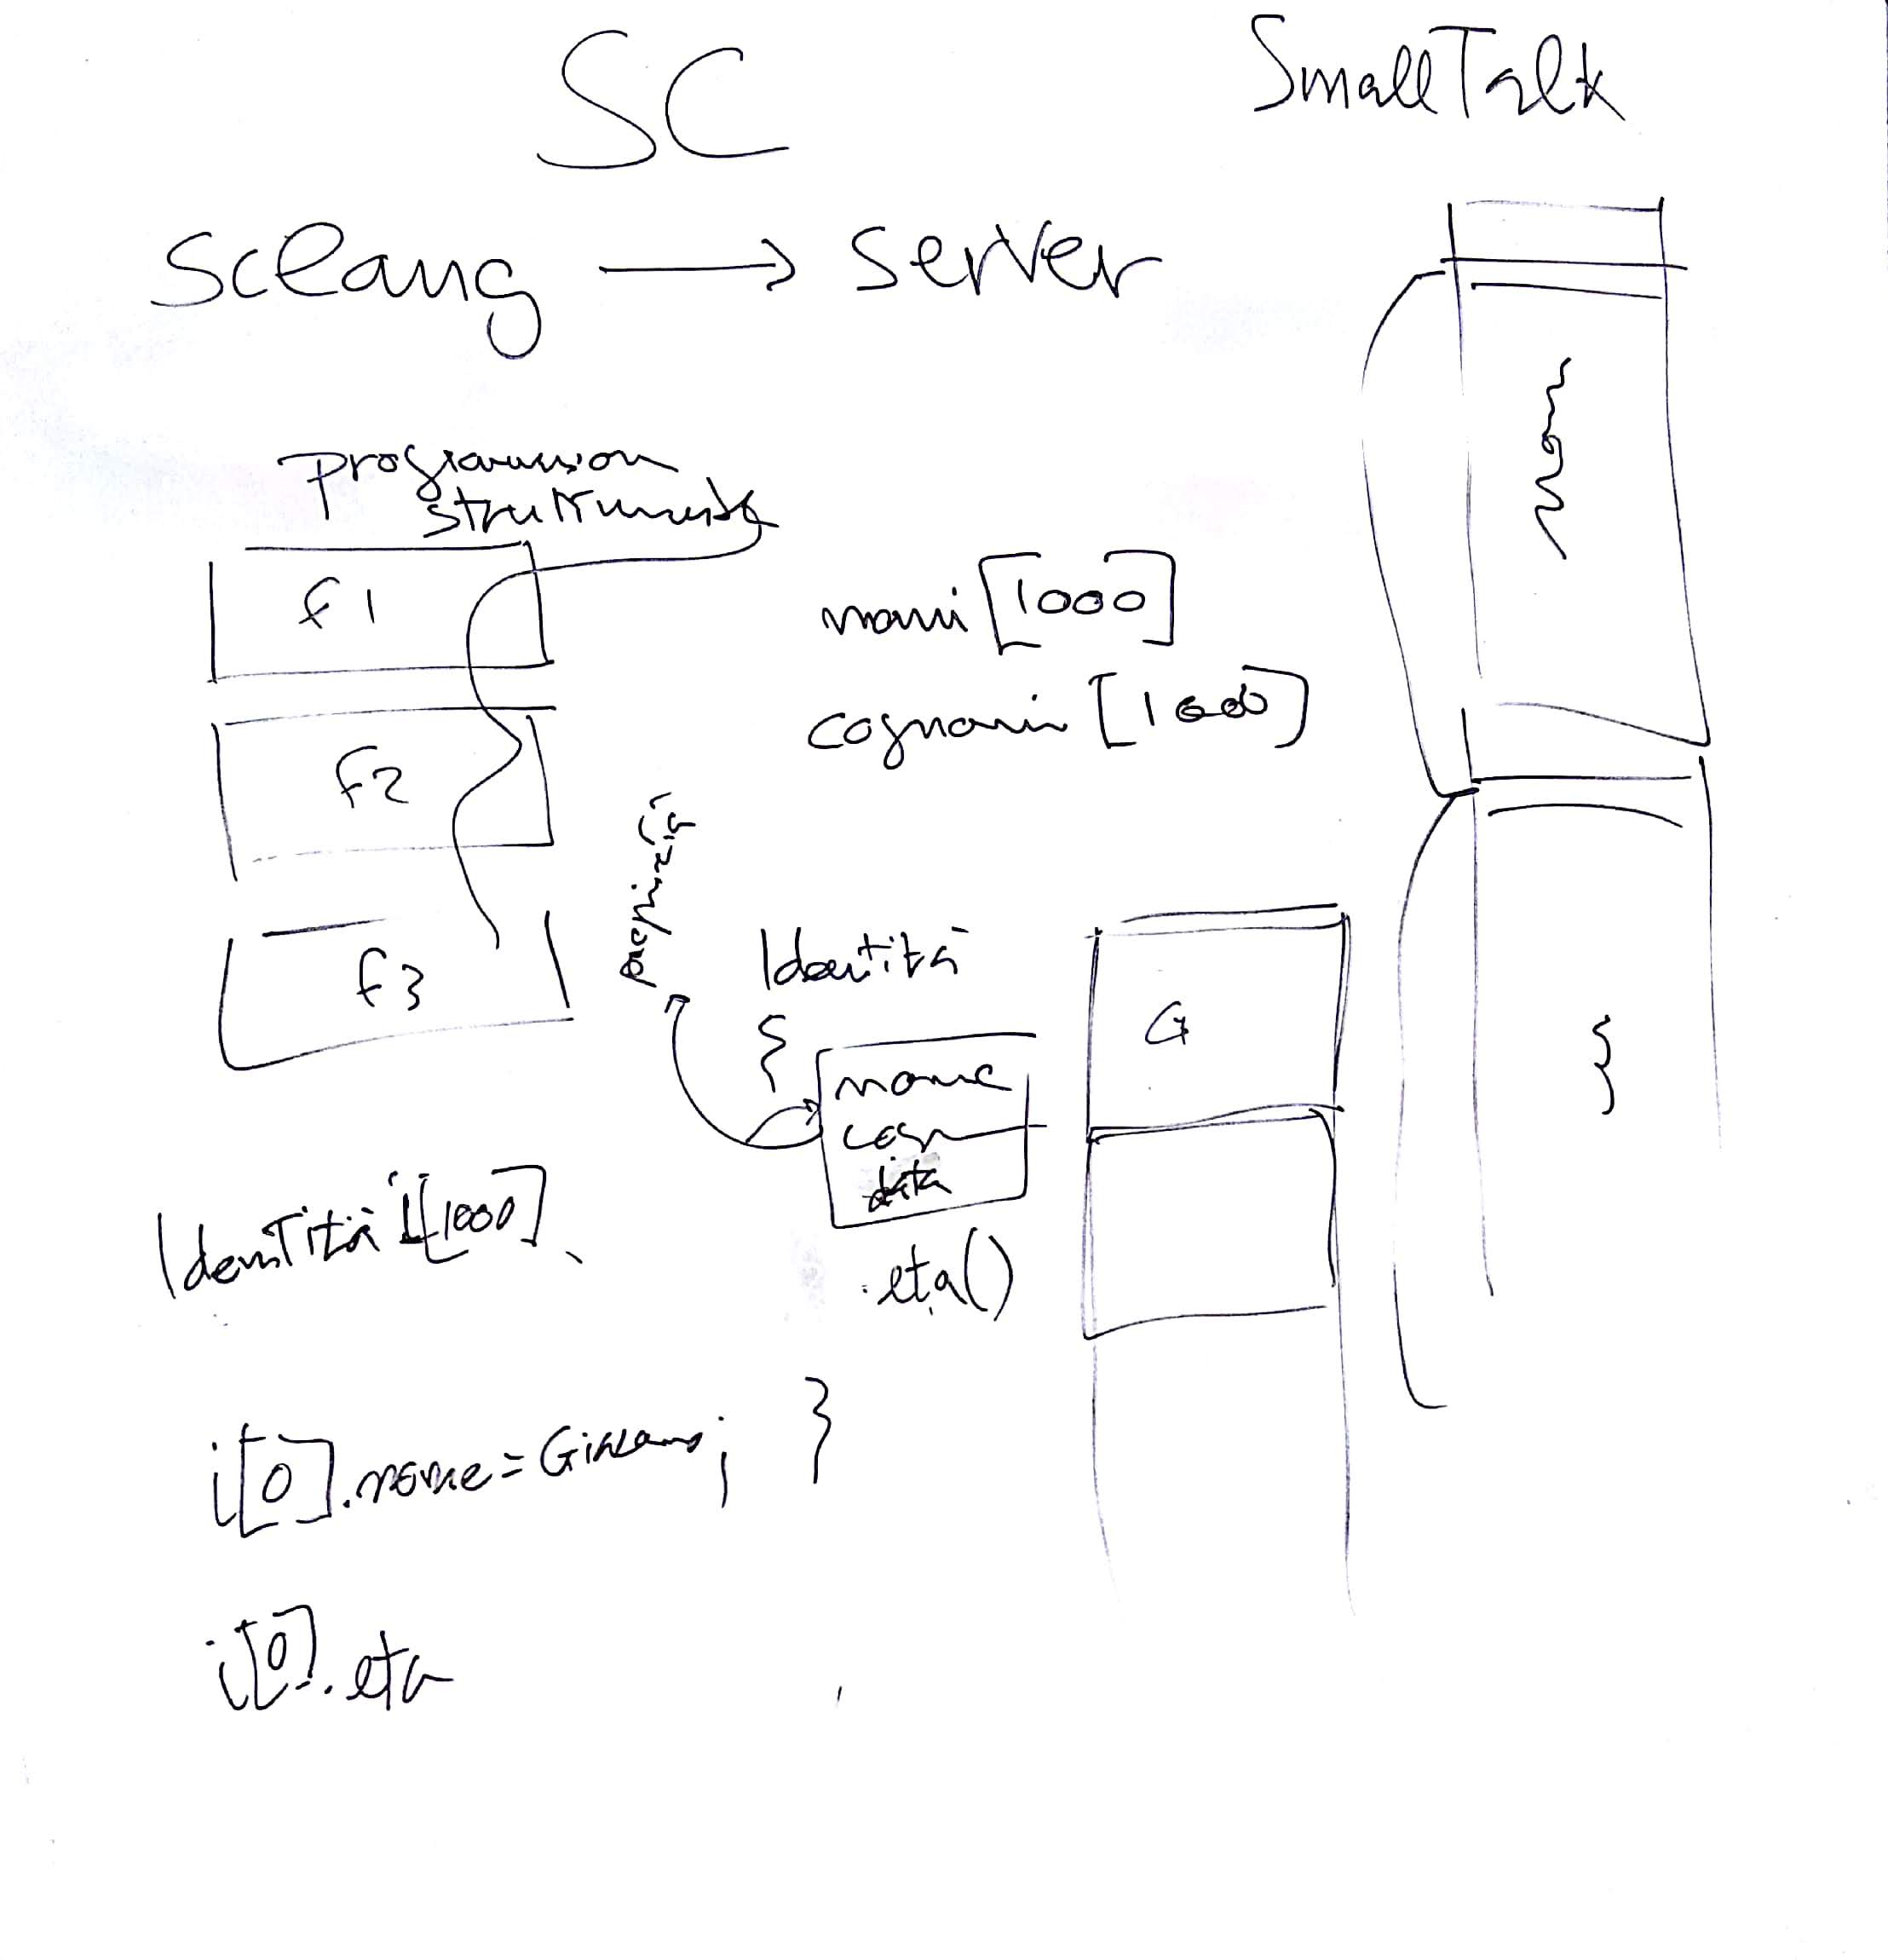 SC
SmallTalk
sclang → server
programmazion
strutturata
f1
f2
f3
nomi [1000]
cognomi [1000]
Identità
{
nome
cogn
data
.eta()
}
G
Identità i[1000]
i[0].nome=Giuliano;
i[0].eta